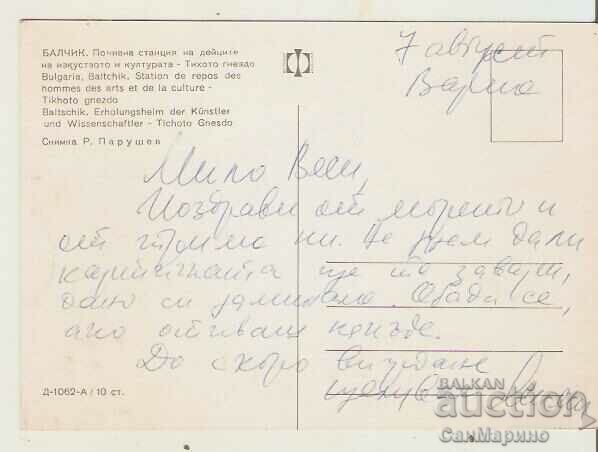 БАЛЧИК. Почивна станция на дейците
на изкуството и културата - Тихото гнездо
Bulgaria, Baltchik, Station de repos des
hommes des arts et de la culture -
Tikhoto gnezdo
Baltschik, Erholungsheim der Künstler
und Wissenschaftler - Tichoto Gnesdo
Снимка Р. Парушев
7 август
Варна
Мило Вели,
Поздрави от морето и
от ни. Не знам дали
картичката ще те завари,
дано си заминала. Обади се,
ако отиваш някъде.
До скоро виждане
Д-1062-А / 10 ст.
BALKAN
auction
СанМарино